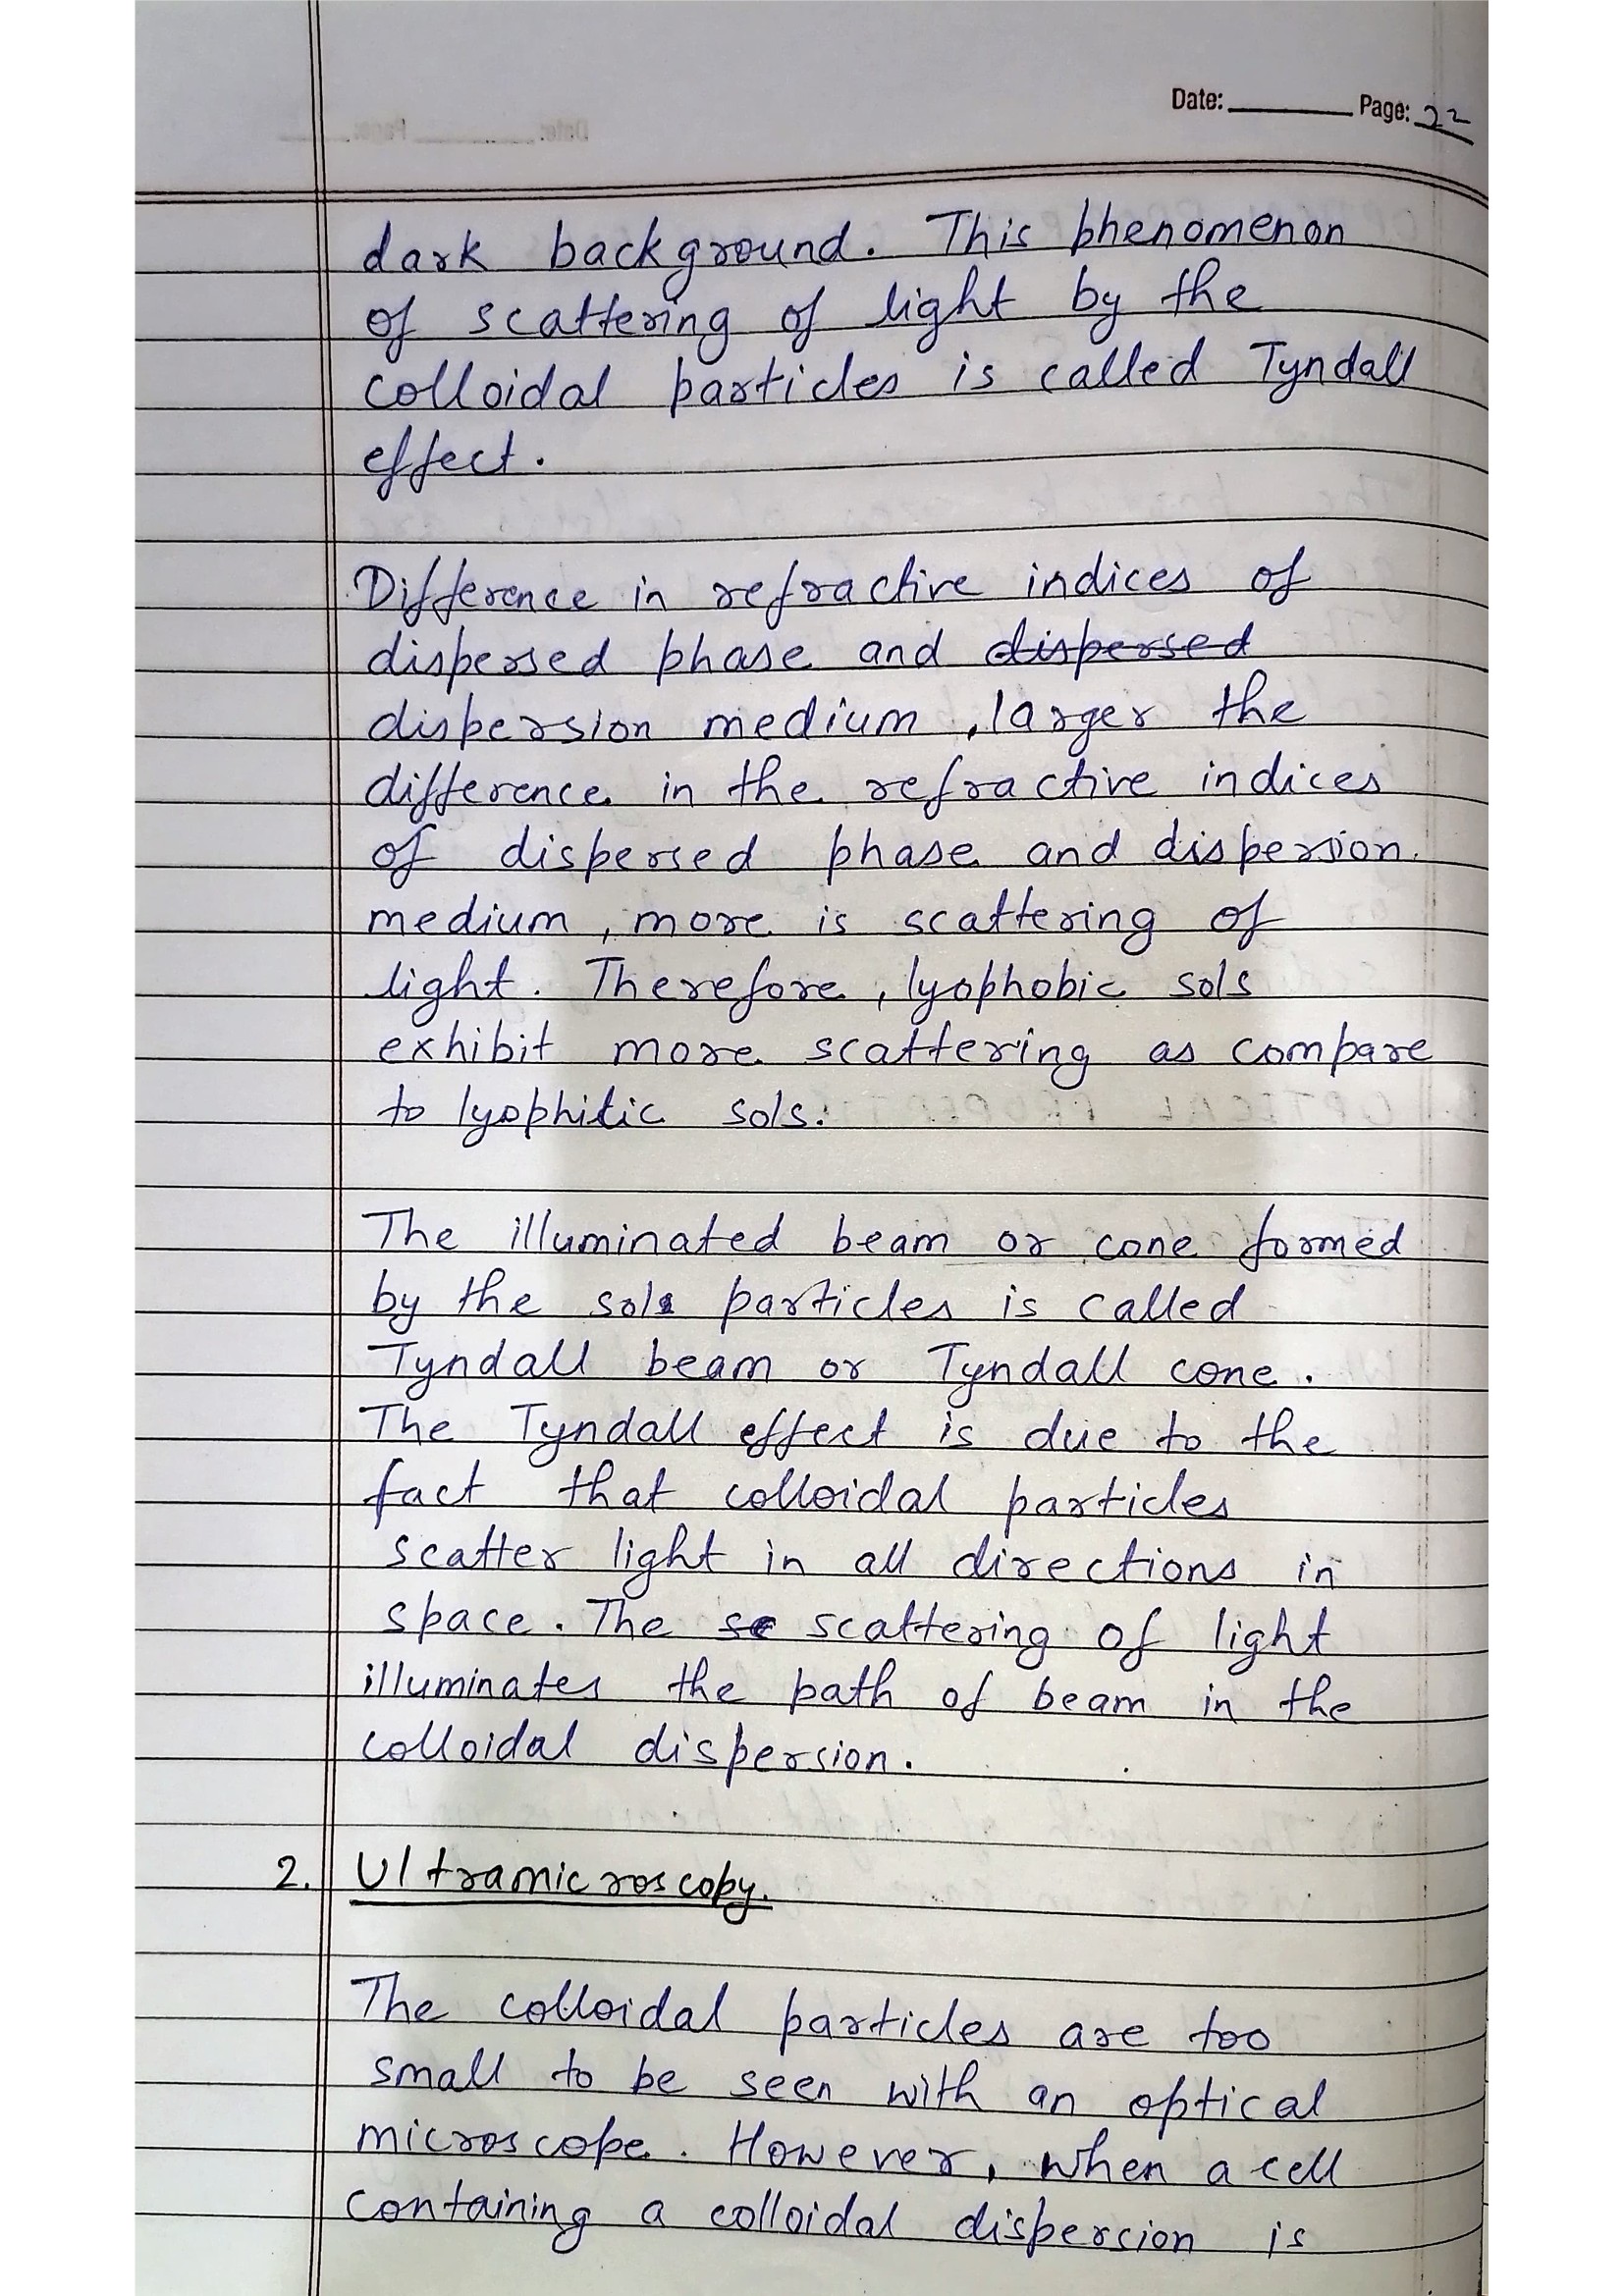 Date: Page: 22
dark background. This phenomenon
of scattering of light by the
colloidal particles is called Tyndall
effect.
Difference in refractive indices of
dispersed phase and dispersed
dispersion medium, larger the
difference in the refractive indices
of dispersed phase and dispersion
medium, more is scattering of
light. Therefore, lyophobic sols
exhibit more scattering as compare
to lyophilic sols.
The illuminated beam or cone formed
by the sols particles is called
Tyndall beam or Tyndall cone.
The Tyndall effect is due to the
fact that colloidal particles
scatter light in all directions in
space. The sc scattering of light
illuminates the path of beam in the
colloidal dispersion.
2. Ultramicroscopy.
The colloidal particles are too
small to be seen with an optical
microscope. However, when a cell
containing a colloidal dispersion is